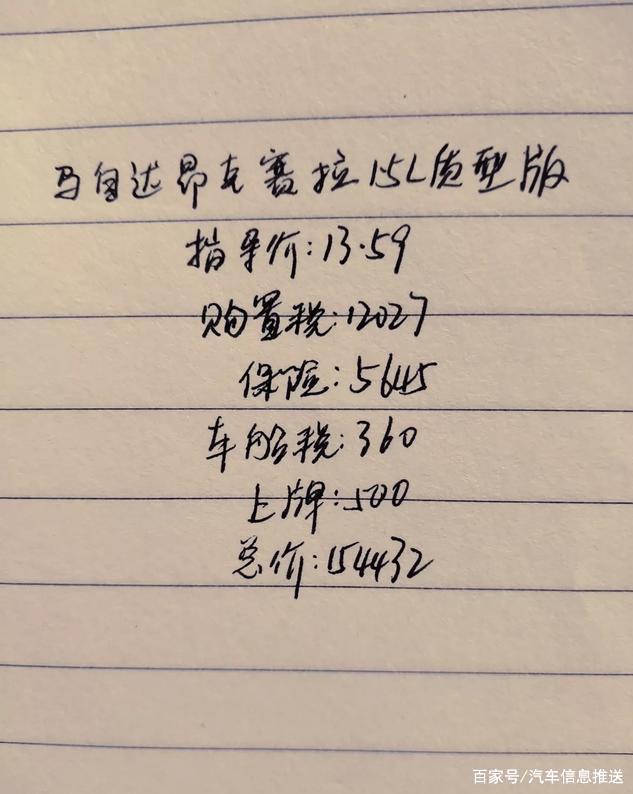 马自达昂克赛拉15L质型版
指导价:13.59
购置税:12027
保险:5645
车船税:360
上牌:500
总价:154432
百家号/汽车信息推送